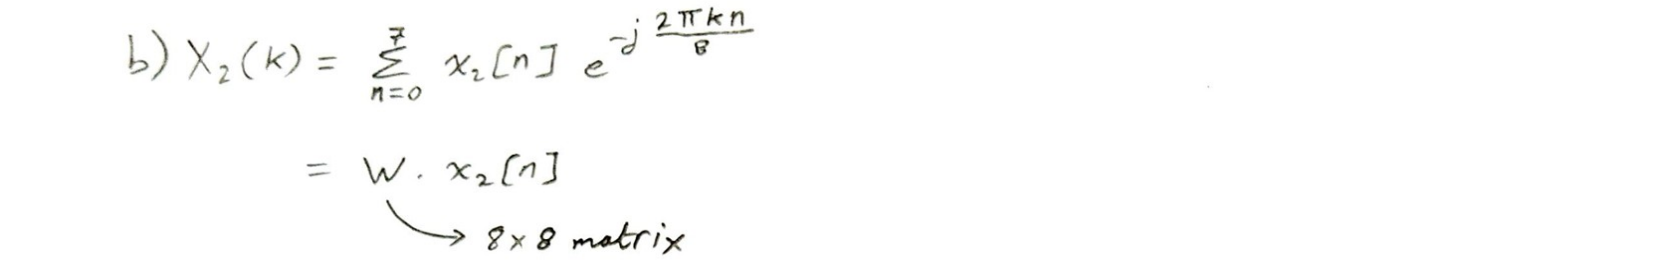 b) X₂(k) = Σ_{n=0}^{7} x₂[n] e^{-j 2πkn/8}
= W . x₂[n]
→ 8×8 matrix